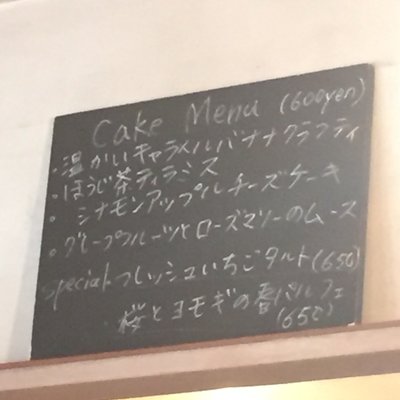 Cake Menu (600yen)
・温かいキャラメルバナナクラフティ
・ほうじ茶ティラミス
・シナモンアップルチーズケーキ
・グレープフルーツとローズマリーのムース
special フレッシュいちごタルト(650)
・桜とヨモギの春パルフェ
(650)